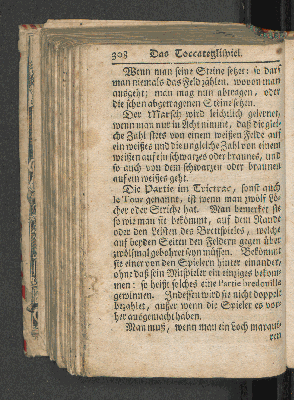 308 Das Toccateglispiel.
Wenn man seine Steine setzet: so darf
man niemals das Feld zählen, wovon man
ausgeht; man mag nun abtragen, oder
die schon abgetragenen Steine setzen.
Der Marsch wird leichtlich gelernet,
wenn man nur in Acht nimmt, daß die glei-
che Zahl stets von einem weißen Felde auf
ein weißes und die ungleiche Zahl von einem
weißen auf ein schwarzes oder braunes, und
so auch von dem schwarzen oder braunen
auf ein weißes geht.
Die Partie im Trictrac, sonst auch
le Tour genannt, ist wenn man zwölf Lö-
cher oder Striche hat. Man bemerket sie
so wie man sie bekömmt, auf dem Rande
oder den Leisten des Brettspieles, welche
auf beyden Seiten den Feldern gegen über
zwölfmal gebohret seyn müssen. Bekömmt
sie einer von den Spielern hinter einander,
ohne daß sein Mitspieler ein einziges bekom-
men: so heißt solches eine Partie bredouille
gewinnen. Indessen wird sie nicht doppelt
bezahlet, außer wenn die Spieler es vor-
her ausgemacht haben.
Man muß, wenn man ein Loch marqui-
ren